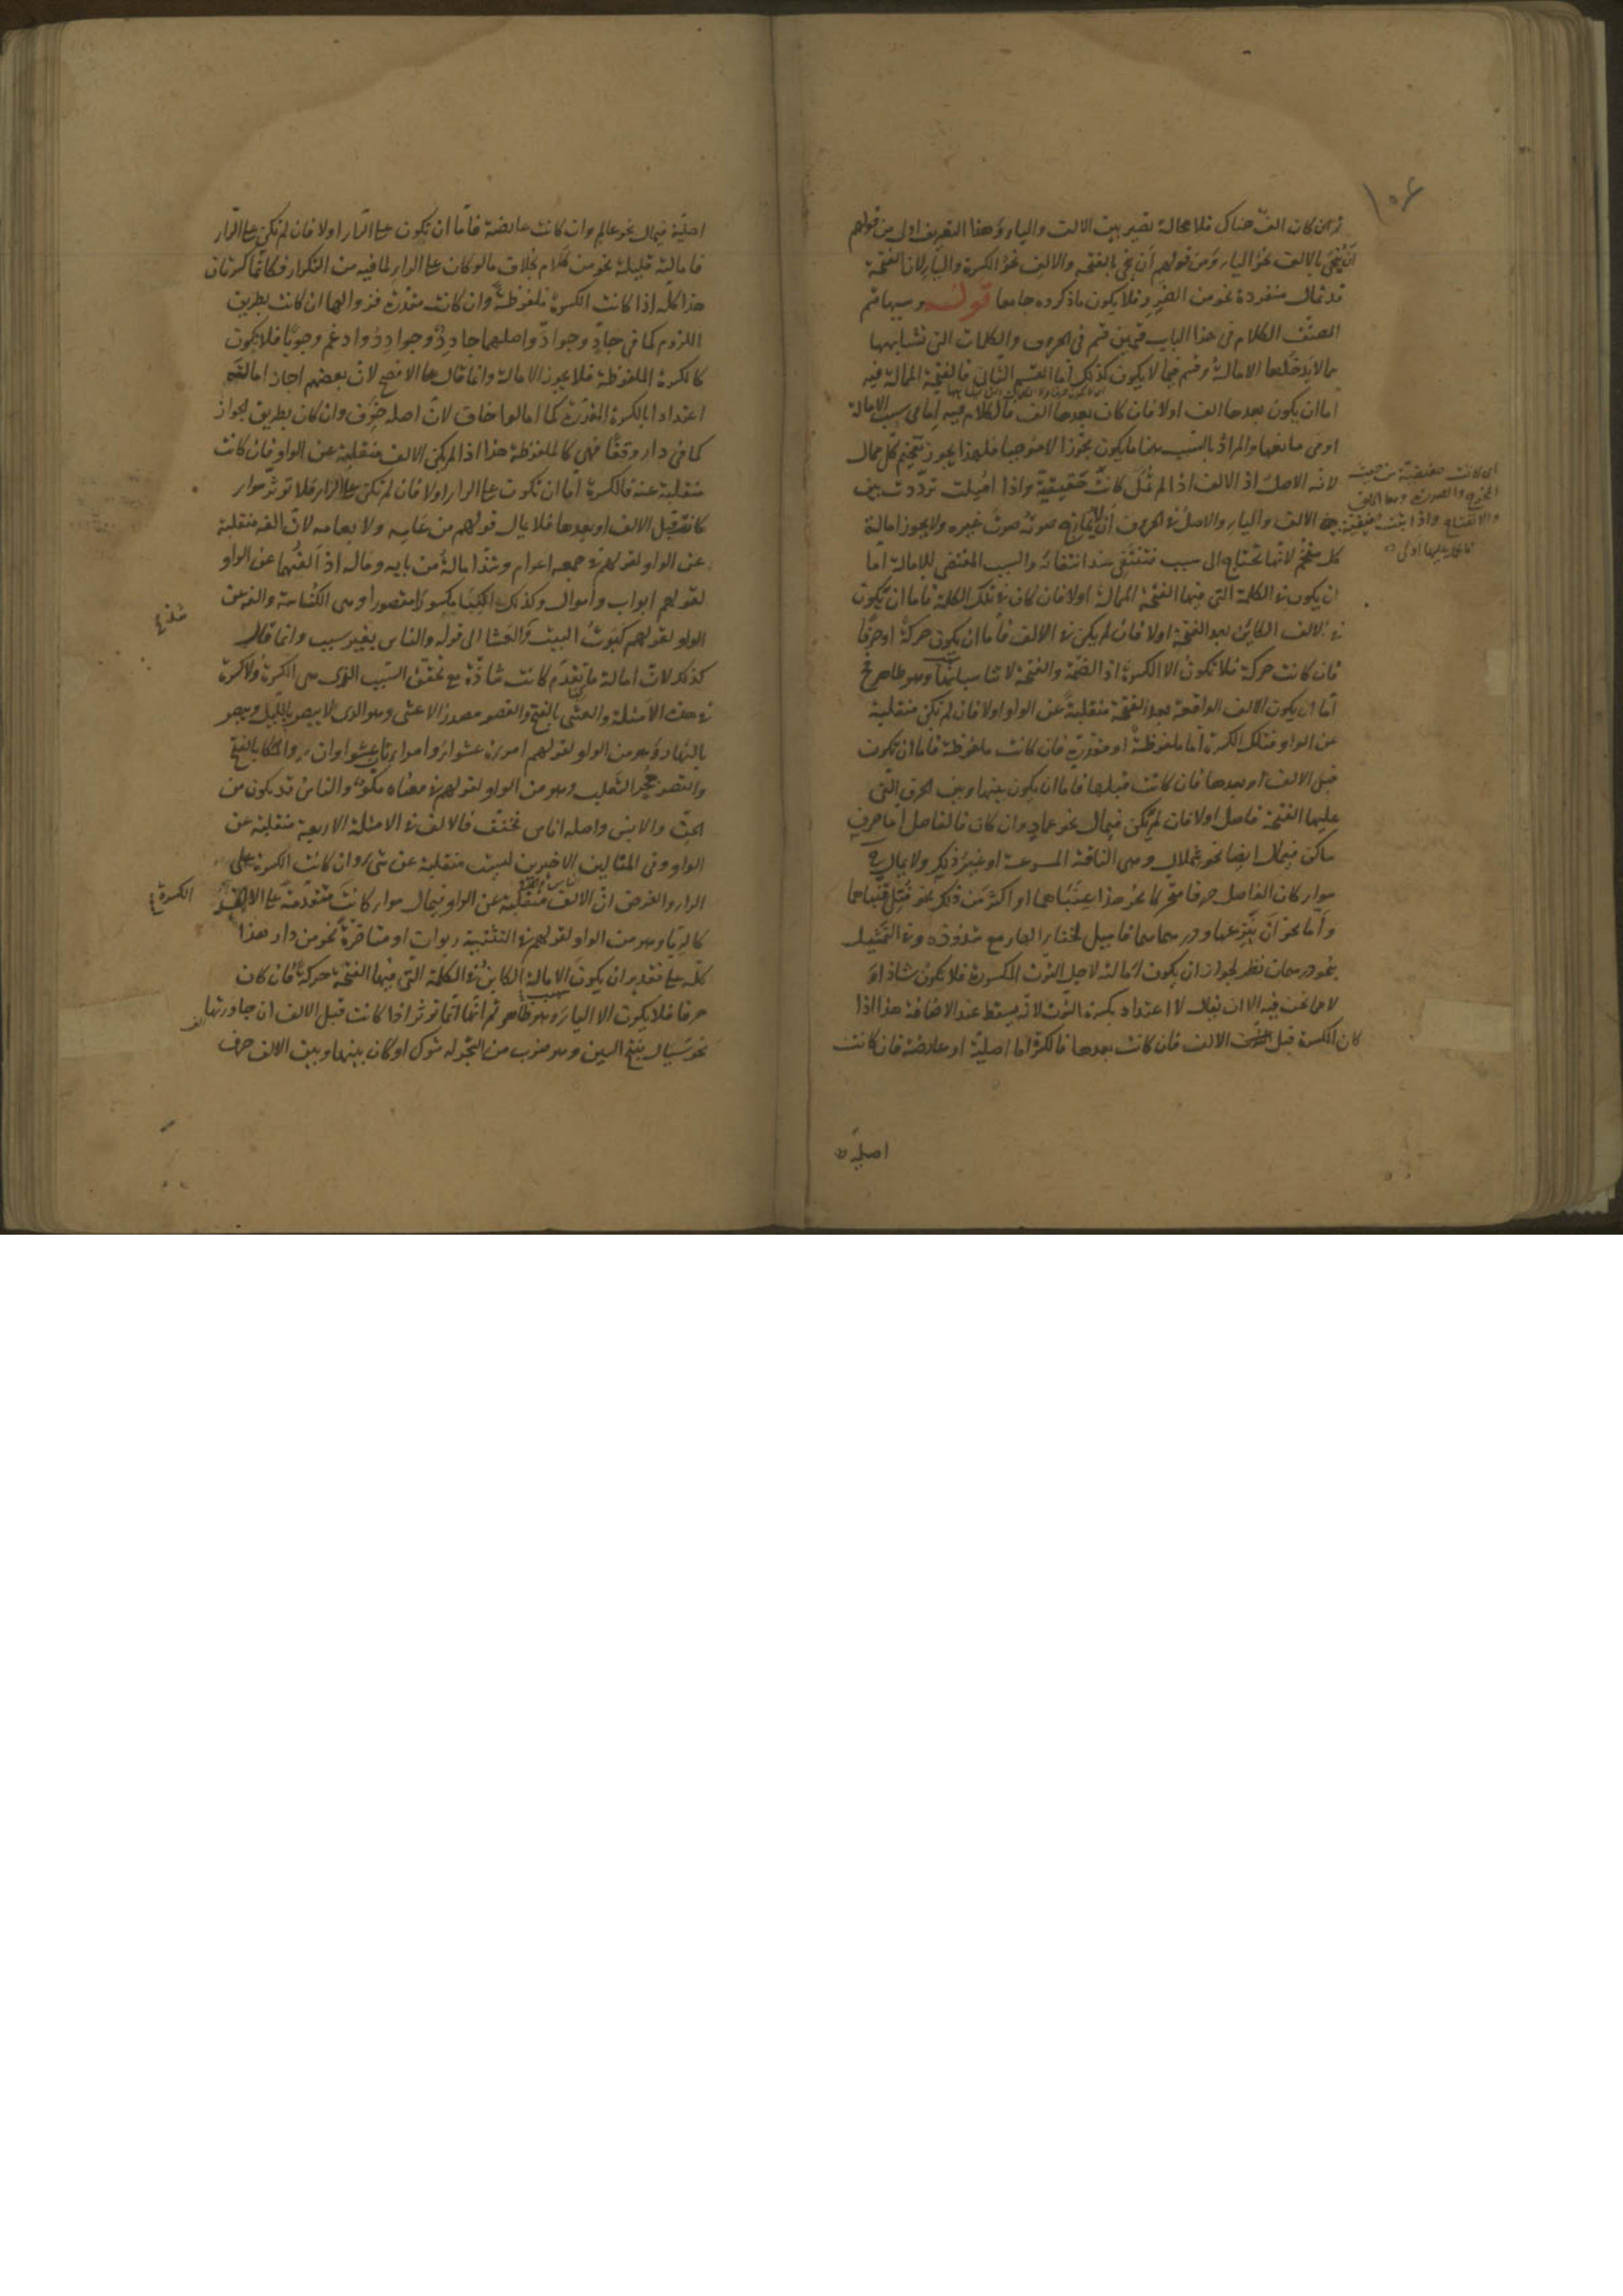 ثم ان كان الف هناك فلا محالة تصير بين الالف والياء وهذا التعريف اولى من قولهم
ان ينحى بالالف نحو الياء ومن قولهم ان ينحى بالفتحة والالف نحو الكسرة والياء لان الفتحة
قد تمال منفردة نحو من الضرر فلا يكون ما ذكروه جامعا قوله وسببها قسم
المصنف الكلام فى هذا الباب قسمين قسم فى الحروف والكلمات التى تشابهها
مما لا يدخلها الامالة وقسم فيما لا يكون كذلك اما القسم الثانى فالفتحة الممالة فيه
اما ان يكون بعدها الف اولا فان كان بعدها الف فالكلام فيه اما فى سبب الامالة
او فى مانعها والمراد بالسبب ههنا ما يكون مجوزا لا موجبا فلهذا يجوز تفخيم كل ممال
لانه الاصل اذ الالف اذا لم تمل كانت حقيقية واذا اميلت ترددت بين
الالف والياء والاصل فى الحروف ان لا يمازج صوته صوت غيره ولا يجوز امالة
كل مفخم لانها تحتاج الى سبب فتنتفى عند انتفائه والسبب المقتضى للامالة اما
ان يكون فى الكلمة التى فيها الفتحة الممالة اولا فان كان فى تلك الكلمة فاما ان يكون
فى الالف الكاين بعد الفتحة اولا فان لم يكن فى الالف فاما ان يكون حركة او حرفا
فان كانت حركة فلا تكون الا الكسرة اذ الضمة والفتحة لا تناسبانها وهو ظاهر فح
اما ان يكون الالف الواقعة بعد الفتحة منقلبة عن الواو اولا فان لم تكن منقلبة
عن الواو فتلك الكسرة اما ملفوظة او مقدرة فان كانت ملفوظة فاما ان تكون
قبل الالف او بعدها فان كانت قبلها فاما ان يكون بينها وبين الحرف التى
عليها الفتحة فاصل اولا فان لم تكن فيمال نحو عماد وان كان فالفاصل اما حرف
ساكن فيمال ايضا نحو شملال وهى الناقة المسرعة او غير ذلك ولا يمال
سواء كان الفاصل حرفا متحركا نحو هذا عنباهما او اكثر من ذلك نحو قتل قنباهما
واما نحو ان ينزعها ودرهماهما فاميل لخفاء الهاء مع شذوذه وفى التمثيل
بنحو درهمان نظر لجواز ان يكون امالته لاجل النون المكسورة فلا تكون شاذا و
لا مما نحن فيه الا ان يقال لا اعتداد بكسرة النون لانه يسقط عند الاضافة هذا اذا
كان الكسرة قبل الالف فان كانت بعدها فالكسرة اما اصلية او عارضة فان كانت
اصلية
اصلية فيمال نحو عالم وان كانت عارضة فاما ان تكون على الراء اولا فان لم تكن على الراء
فامالته قليلة نحو من كلام بخلاف ما لو كان على الراء لما فيه من التكرار فكانما كسرتان
هذا كله اذا كانت الكسرة ملفوظة وان كانت مقدرة فزوالها ان كانت بطريق
اللزوم كما فى جاد وجواد واصلهما جادد وجوادد وادغم وجوبا فلا يكون
كالكسرة الملفوظة فلا يجوز الامالة وانما قال على الافصح لان بعضهم اجاز امالته
اعتدادا بالكسرة المقدرة كما امالوا خاف لان اصله خوف وان كان بطريق الجواز
كما فى دار وقفا فهى كالملفوظة هذا اذا لم يكن الالف منقلبة عن الواو فان كانت
منقلبة عنه فالكسرة اما ان تكون على الراء اولا فان لم تكن على الراء فلا تؤثر سواء
كانت قبل الالف او بعدها فلا يمال قولهم من عامه ولا بعامه لان الفه منقلبة
عن الواو لقولهم فى جمعه اعوام وشذ امالة من بابه وماله اذ الفهما عن الواو
لقولهم ابواب واموال وكذلك الكبا بكسر مقصورا وهى الكناسة والفه عن
الواو لقولهم كبوت البيت والعشا الى قوله والناس بغير سبب وانما قال
كذلك لان امالة ما تقدم كانت شاذة مع تحقق السبب الذى هى الكسرة ولا كسرة
فى هذه الامثلة والعشى بالفتح والقصر مصدر الاعشى وهو الذى لا يبصر بالليل ويبصر
بالنهار وهو من الواو لقولهم امرأة عشواء وامرأتان عشواوان والمكا بالفتح
والقصر جحر الثعلب وهو من الواو لقولهم فى معناه مكو والناس قد يكون من
الجن والانس واصله اناس فخفف فالالف فى الامثلة الاربعة منقلبة عن
الواو وفى المثالين الاخيرين ليست منقلبة عن شىء وان كانت الكسرة على
الراء والفرض ان الالف منقلبة عن الواو فيمال سواء كانت متقدمة على الالف
كالربا وهو من الواو لقولهم فى التثنية ربوان او متاخرة نحو من دار هذا
كله على تقدير ان يكون الامالة الكاين فى الكلمة التى فيها الفتحة حركة فان كان
حرفا فلا يكون الا الياء وهو ظاهر ثم انها انما تؤثر اذا كانت قبل الالف ان جاورتها
نحو سيال بفتح السين وهو ضرب من الشجر له شوك او كان بينها وبين الالف حرف